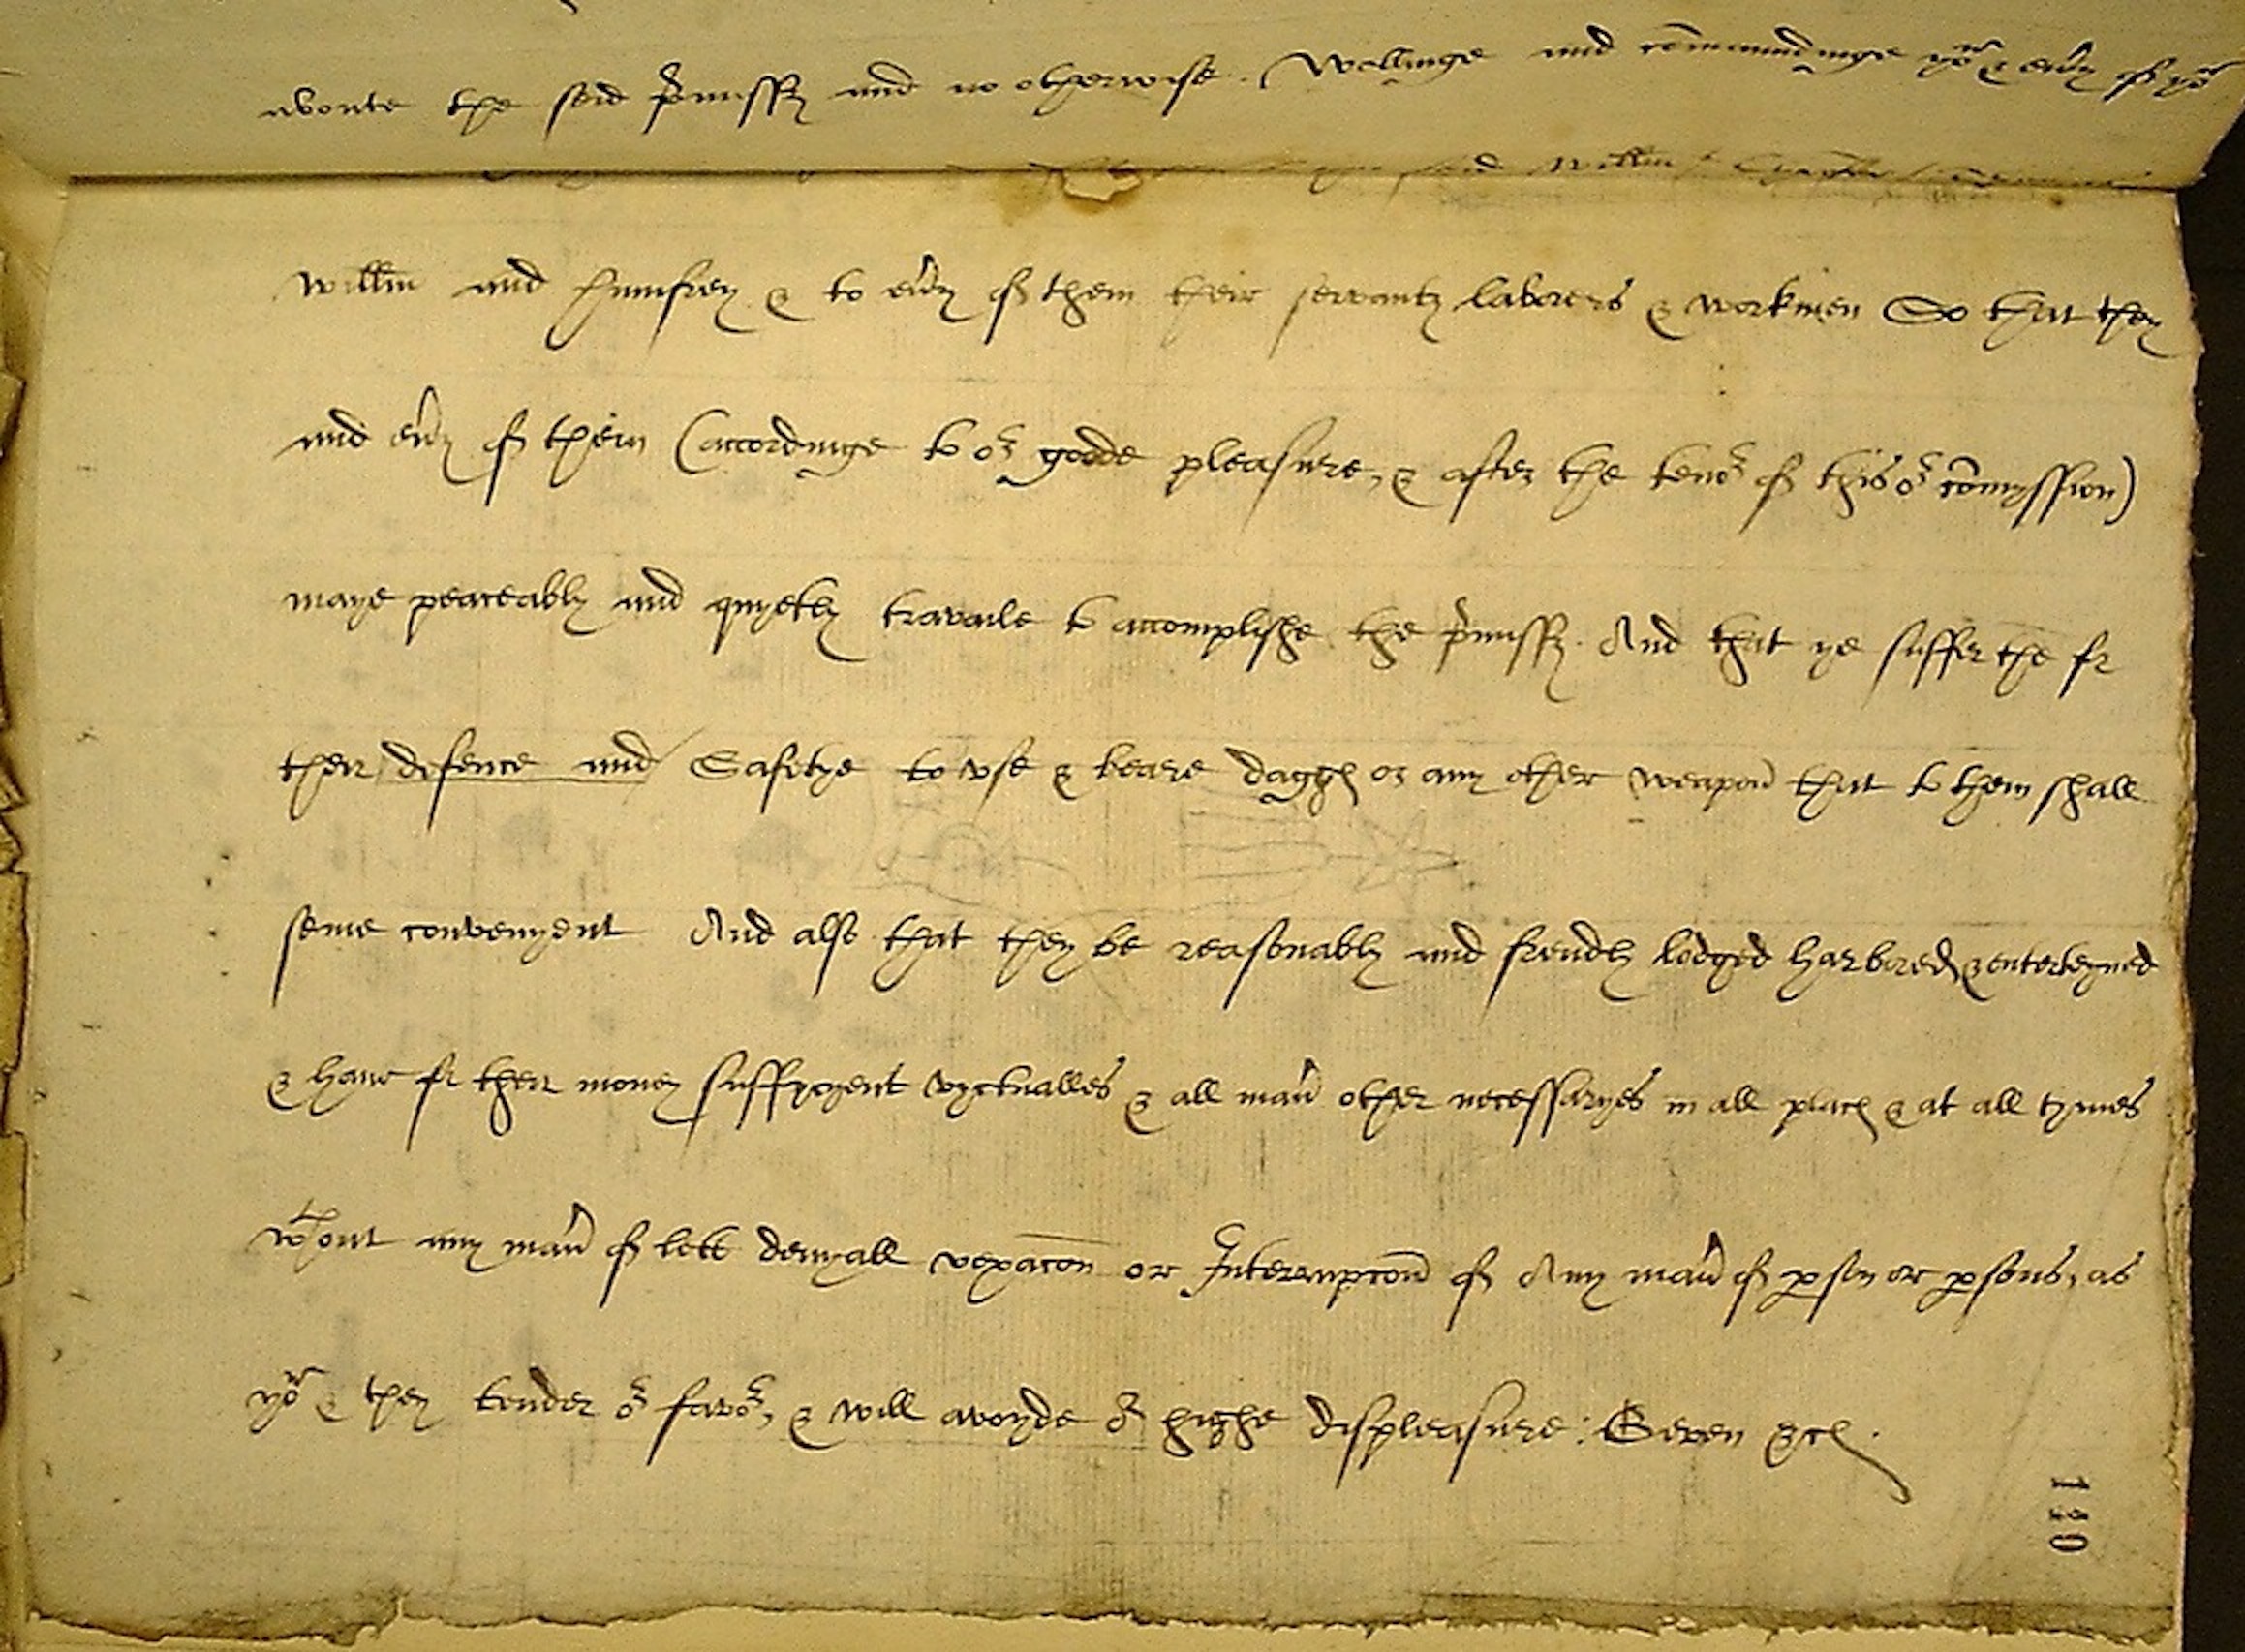 aboute the said p̃miss℮ and no otherwise. Willinge and cõmaundinge yoʷ & eũy of yoʷ
said Willm̃
Willm̃ and Humfrey & to eũy of them their servantℯ laborers & workmen So that they
and eũy of them (accordinge to oʳ goode pleasure, & after the tenoʳ of this oʳ cõmyssion)
maye peaceably and quyetly travaile to accomplishe the p̃miss℮. And that ye suffer the for
their defence and Safetye to vse & beare dagg℮ or any other weapoñ that to them shall
seme convenyent And also that they be reasonably and frendly lodged harbored & enterteyned
& have for their money suffycyent vyctualles & all mañ other necessaryes in all plac℮ & at all tymes
wᵗʰout any mañ of lett denyall vexacõn or Interrupcoñ of Any mañ of ꝑson or ꝑsons, as
yoʷ & they tender oʳ favoʳ, & will avoyde oʳ highe displeasure: Geven &c.
130